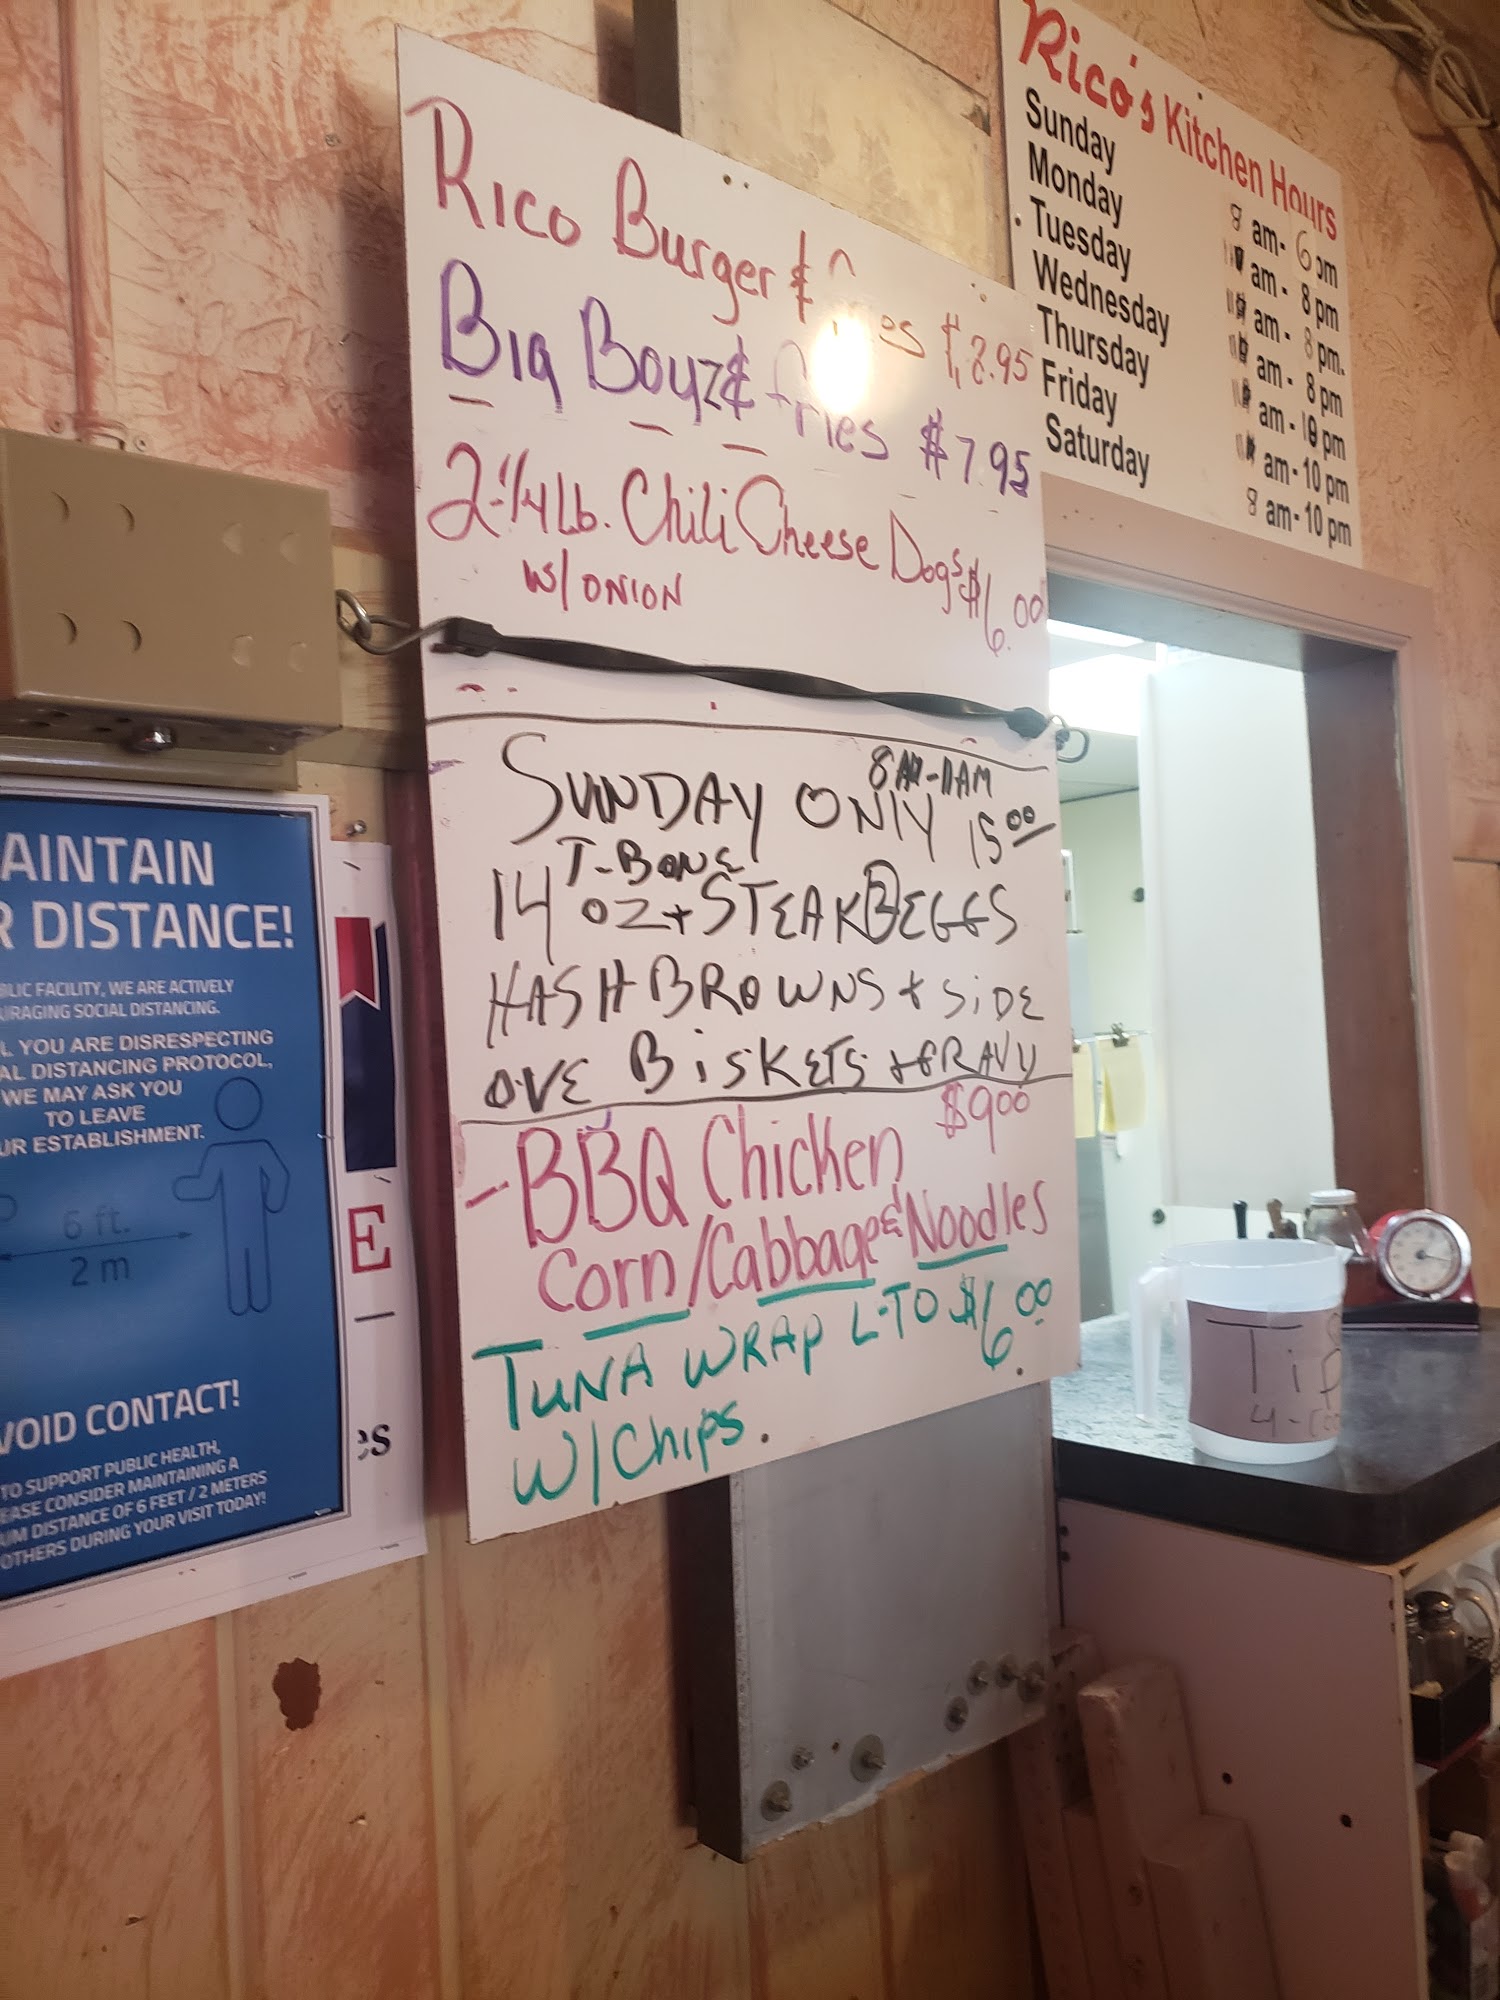 Rico Burger & fries $8.95
Big Boyz & fries $7.95
2-1/4 Lb. Chili Cheese Dogs $6.00
w/ ONION
SUNDAY ONLY 8AM-11AM 15.00
T-BONE
14 OZ + STEAK 2 EGGS
HASH BROWNS + SIDE
OVE BiSKETS + GRAVY
$9.00
- BBQ Chicken
Corn/Cabbage & Noodles
TUNA WRAP L-TO $6.00
W/Chips.
Rico's Kitchen Hours
Sunday 8 am- 6 pm
Monday am - 8 pm
Tuesday am - 8 pm.
Wednesday am - 8 pm
Thursday am - 10 pm
Friday am - 10 pm
Saturday 8 am - 10 pm
AINTAIN
R DISTANCE!
BLIC FACILITY, WE ARE ACTIVELY
URAGING SOCIAL DISTANCING.
L YOU ARE DISRESPECTING
AL DISTANCING PROTOCOL,
WE MAY ASK YOU
TO LEAVE
UR ESTABLISHMENT.
6 ft.
2 m
VOID CONTACT!
TO SUPPORT PUBLIC HEALTH,
EASE CONSIDER MAINTAINING A
UM DISTANCE OF 6 FEET / 2 METERS
OTHERS DURING YOUR VISIT TODAY!
E
es
Tips